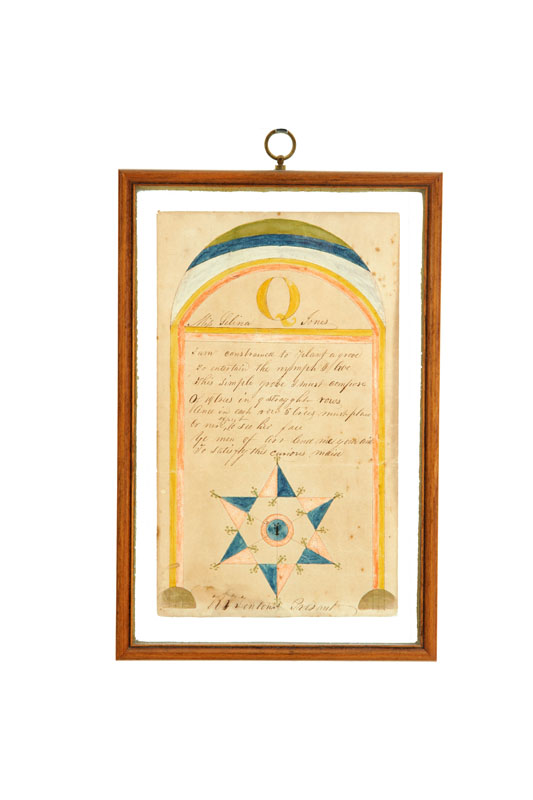 Q
Selena Jones
I am constrained to plant a grove
to entertain the nymph I love
This simple grove I must compose
in 9 straight rows
in each row 8 trees must place
to see her face
Ye men of lend me your aid
To satisfy this curious maid
Present